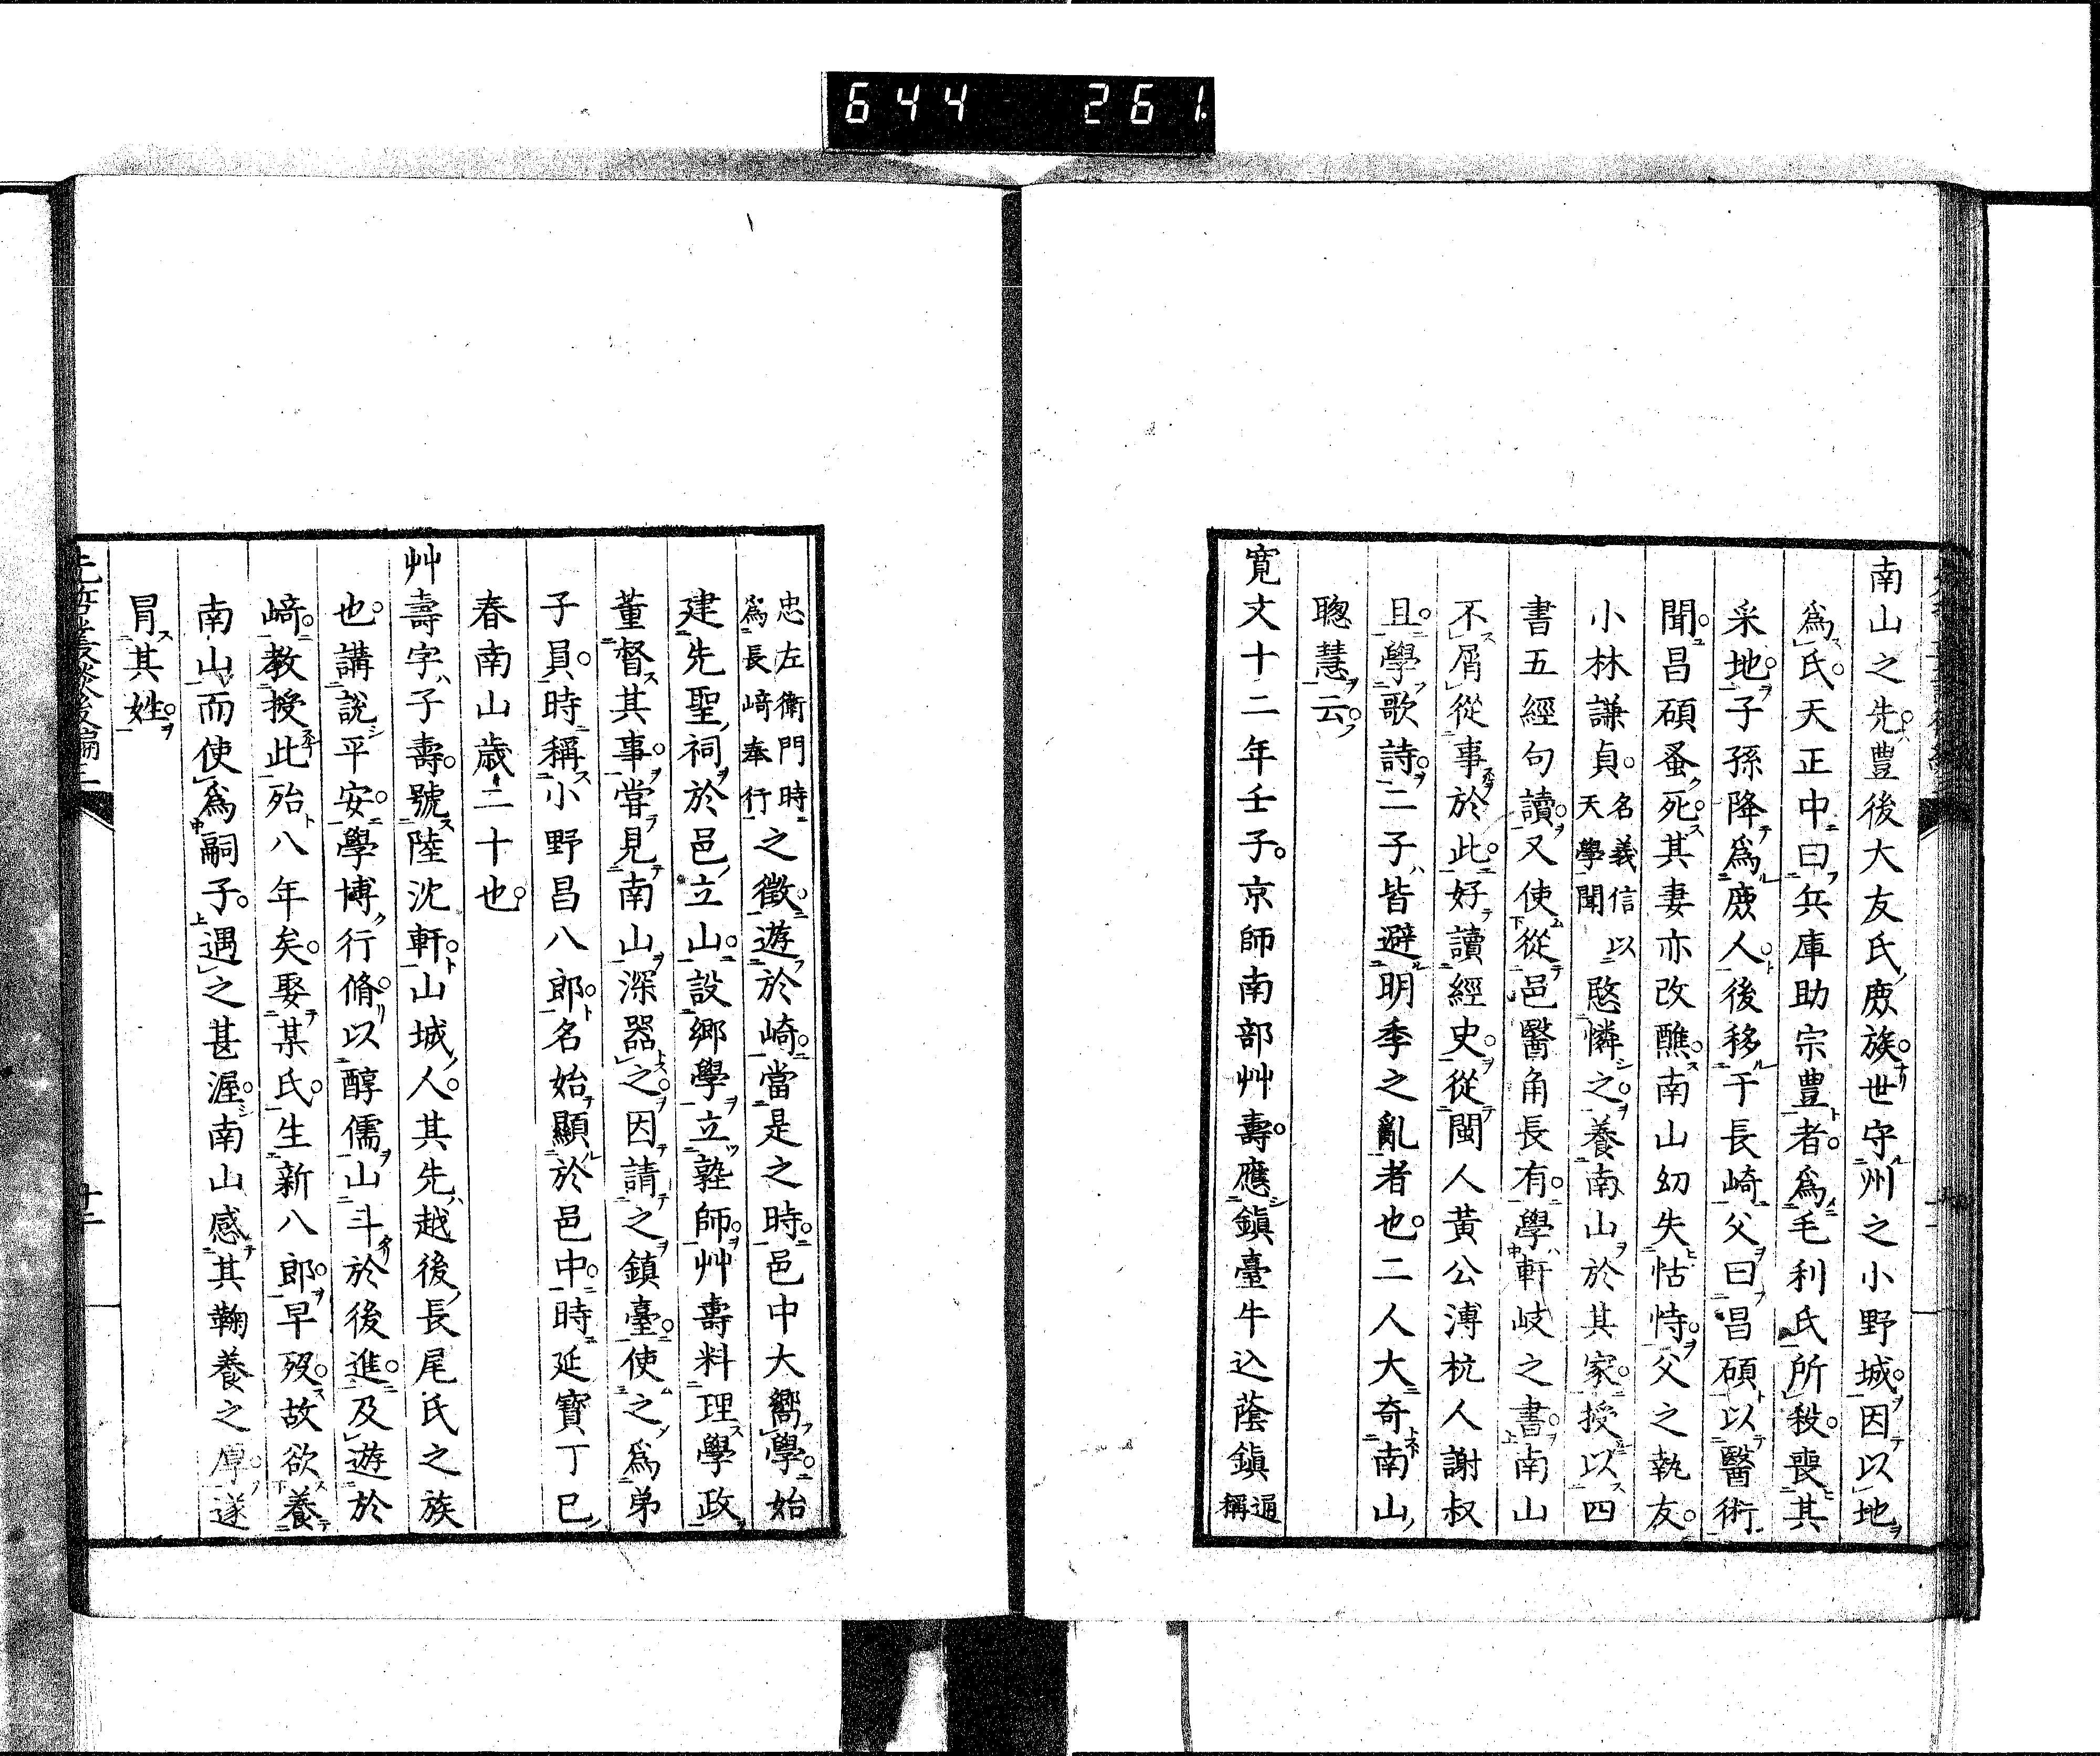 644 261
南山之先豊後大友氏庶族世守州之小野城因以地
爲氏天正中曰兵庫助宗豊者爲毛利氏所殺喪其
采地子孫降爲庶人後移于長崎父曰昌碩以醫術
聞昌碩蚤死其妻亦改醮南山幼失怙恃父之執友
小林謙貞名義信以天學聞愍憐之養南山於其家授以四
書五經句讀又使從邑醫角長有學軒岐之書南山
不屑從事於此好讀經史從閩人黃公溥杭人謝叔
且學歌詩二子皆避明季之亂者也二人大奇南山
聰慧云
寛文十二年壬子京師南部艸壽應鎭臺牛込蔭鎭通稱
忠左衛門時爲長﨑奉行之徵遊於崎當是之時邑中大嚮學始
建先聖祠於邑立山設鄉學立雜師艸壽料理學政
董督其事嘗見南山深器之因請之鎮臺使之爲弟
子員時稱小野昌八郎名始顯於邑中時延寶丁巳
春南山歲二十也
艸壽字子壽號陸沈軒山城人其先越後長尾氏之族
也講說平安學博行脩以醇儒山斗於後進及遊於
﨑教授此殆八年矣娶某氏生新八郎早歿故欲養
南山而使爲嗣子遇之甚渥南山感其鞠養之厚遂
冐其姓
先哲叢談後編三
十二